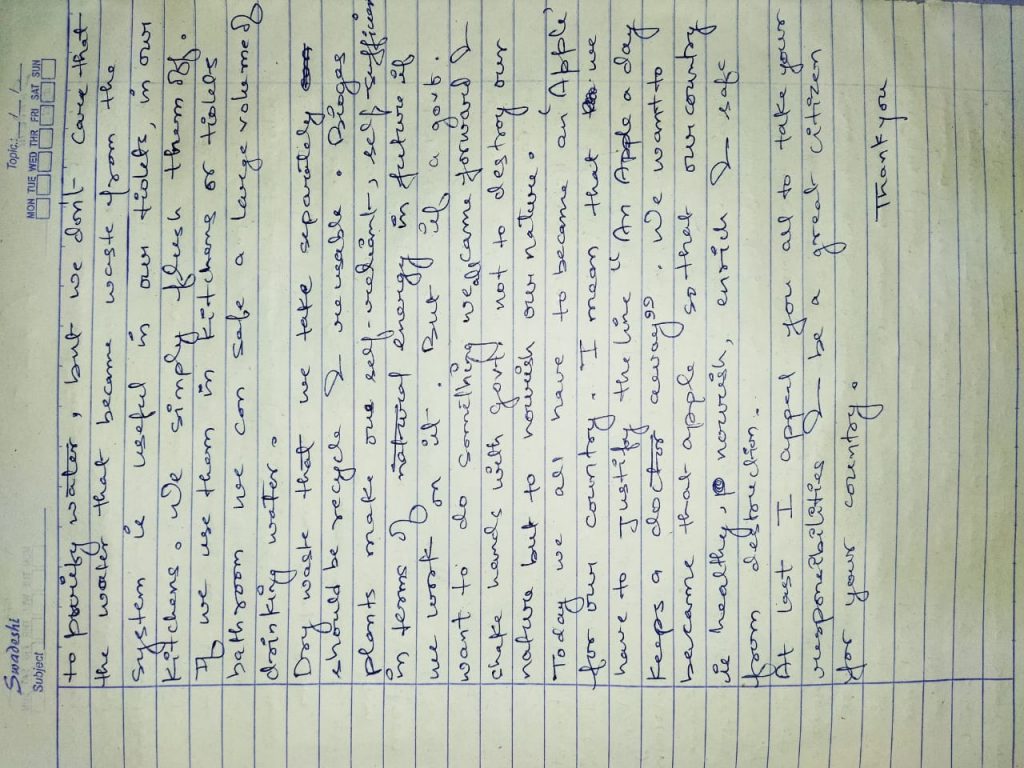 Swadeshi
Subject
Topic:
MON TUE WED THR FRI SAT SUN
to puriefy water, but we don't care that
the water that became waste from the
system is useful in our tiolets, in our
kitchens. We simply flush them off.
If we use them in kitchens or tiolets
bathroom we can safe a large volume of
drinking water.
Dry waste that we take separately
should be recycle & reusable. Biogas
plants make our self-reliant, self-sufficient
in terms of natural energy in future if
we work on it. But if a govt.
want to do something we all came forward &
shake hands with govt, not to destroy our
nature but to nourish our nature.
Today we all have to became an 'Apple'
for our country. I mean that we
have to justify the line "An Apple a day
keeps a doctor away". We want to
became that apple so that our country
is healthy, nourish, enrich & safe
from destruction.
At last I appeal you all to take your
responsibilities & be a great citizen
for your country.
Thank you